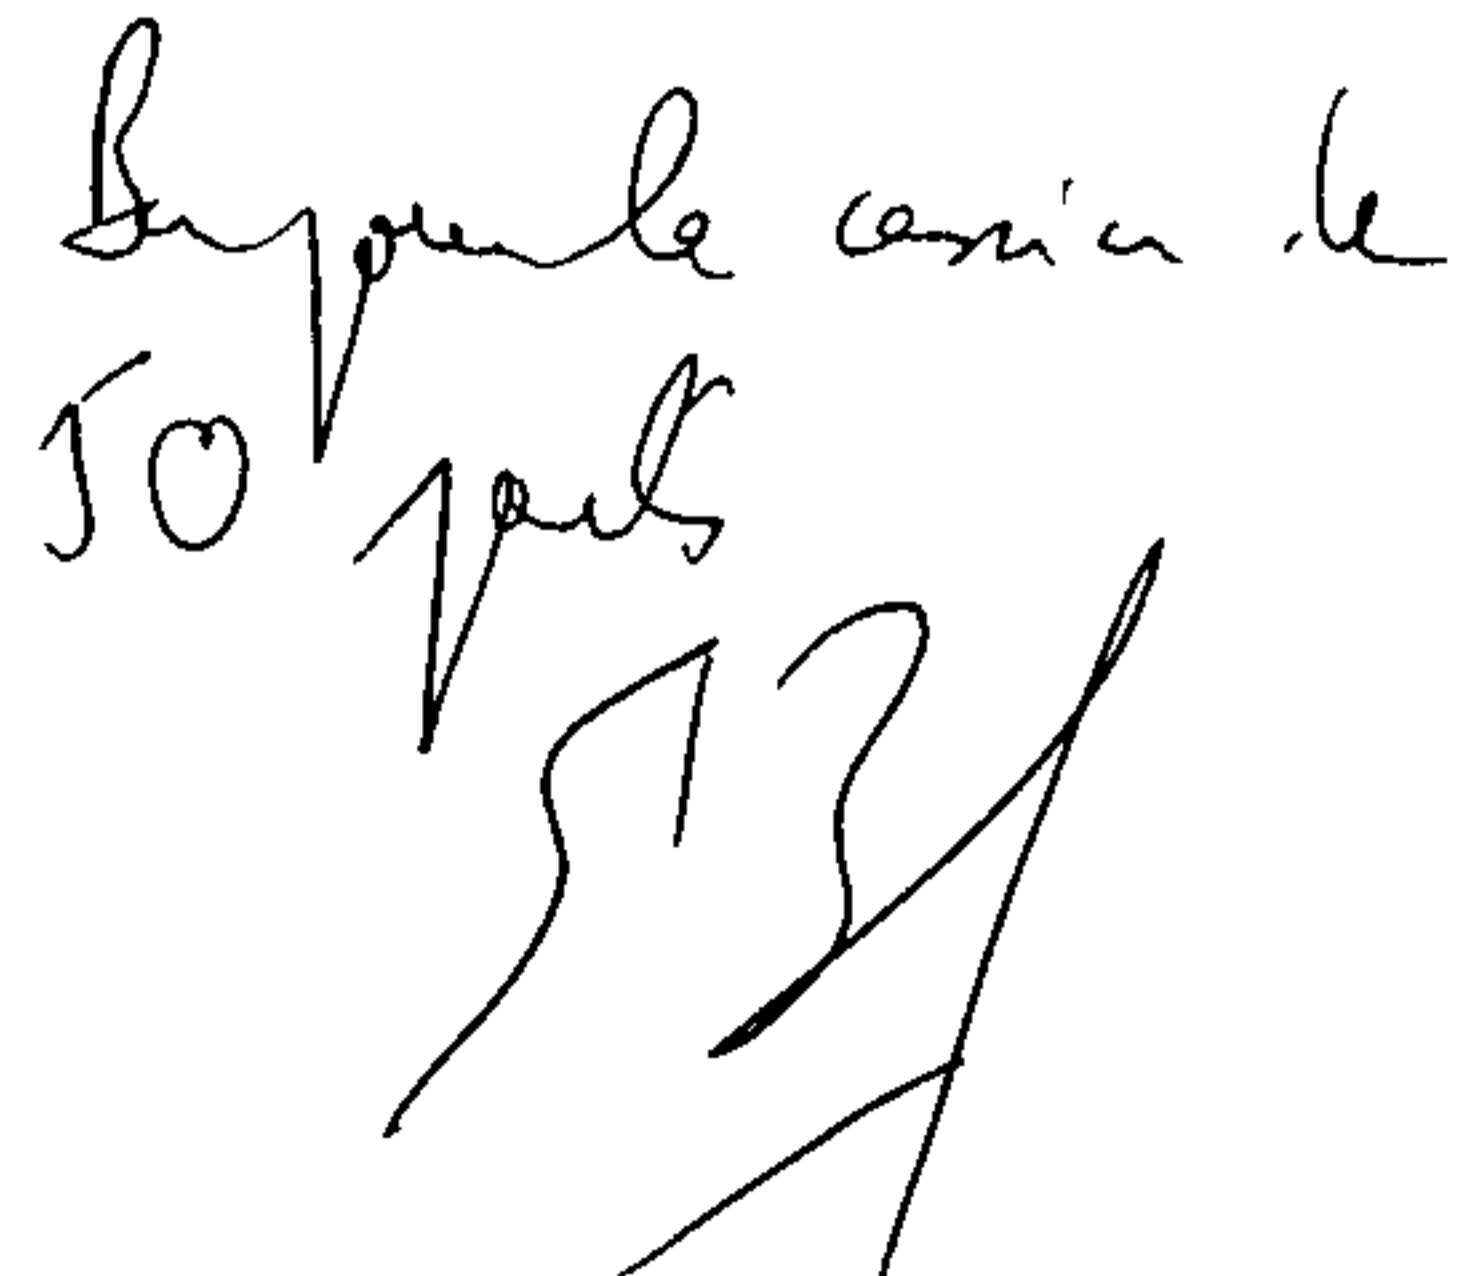 Bon pour la cession de
50 parts